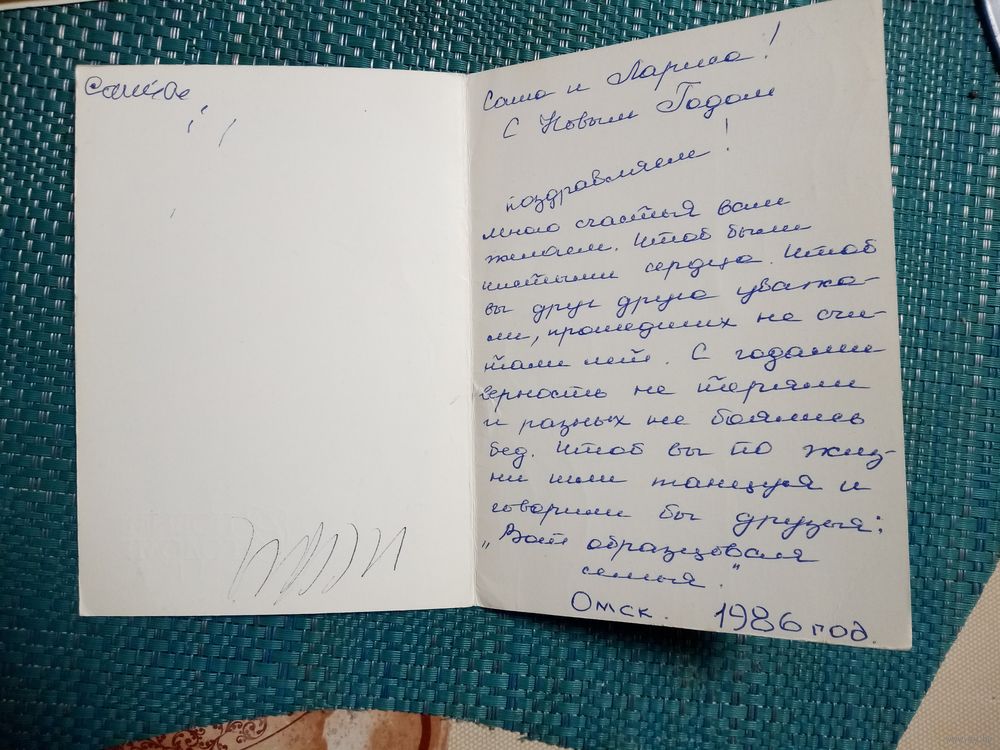 Саша и Лариса!
С Новым Годом
поздравляем!
Много счастья вам
желаем. Чтоб были
чистыми сердца. Чтоб
вы друг друга уважа-
ли, прошедших не счи-
тали лет. С годами
верность не теряли
и разных не боялись
бед. Чтоб вы по жиз-
ни шли танцуя и
говорили бы друзья:
„Вот образцовая
семья."
Омск. 1986 год.